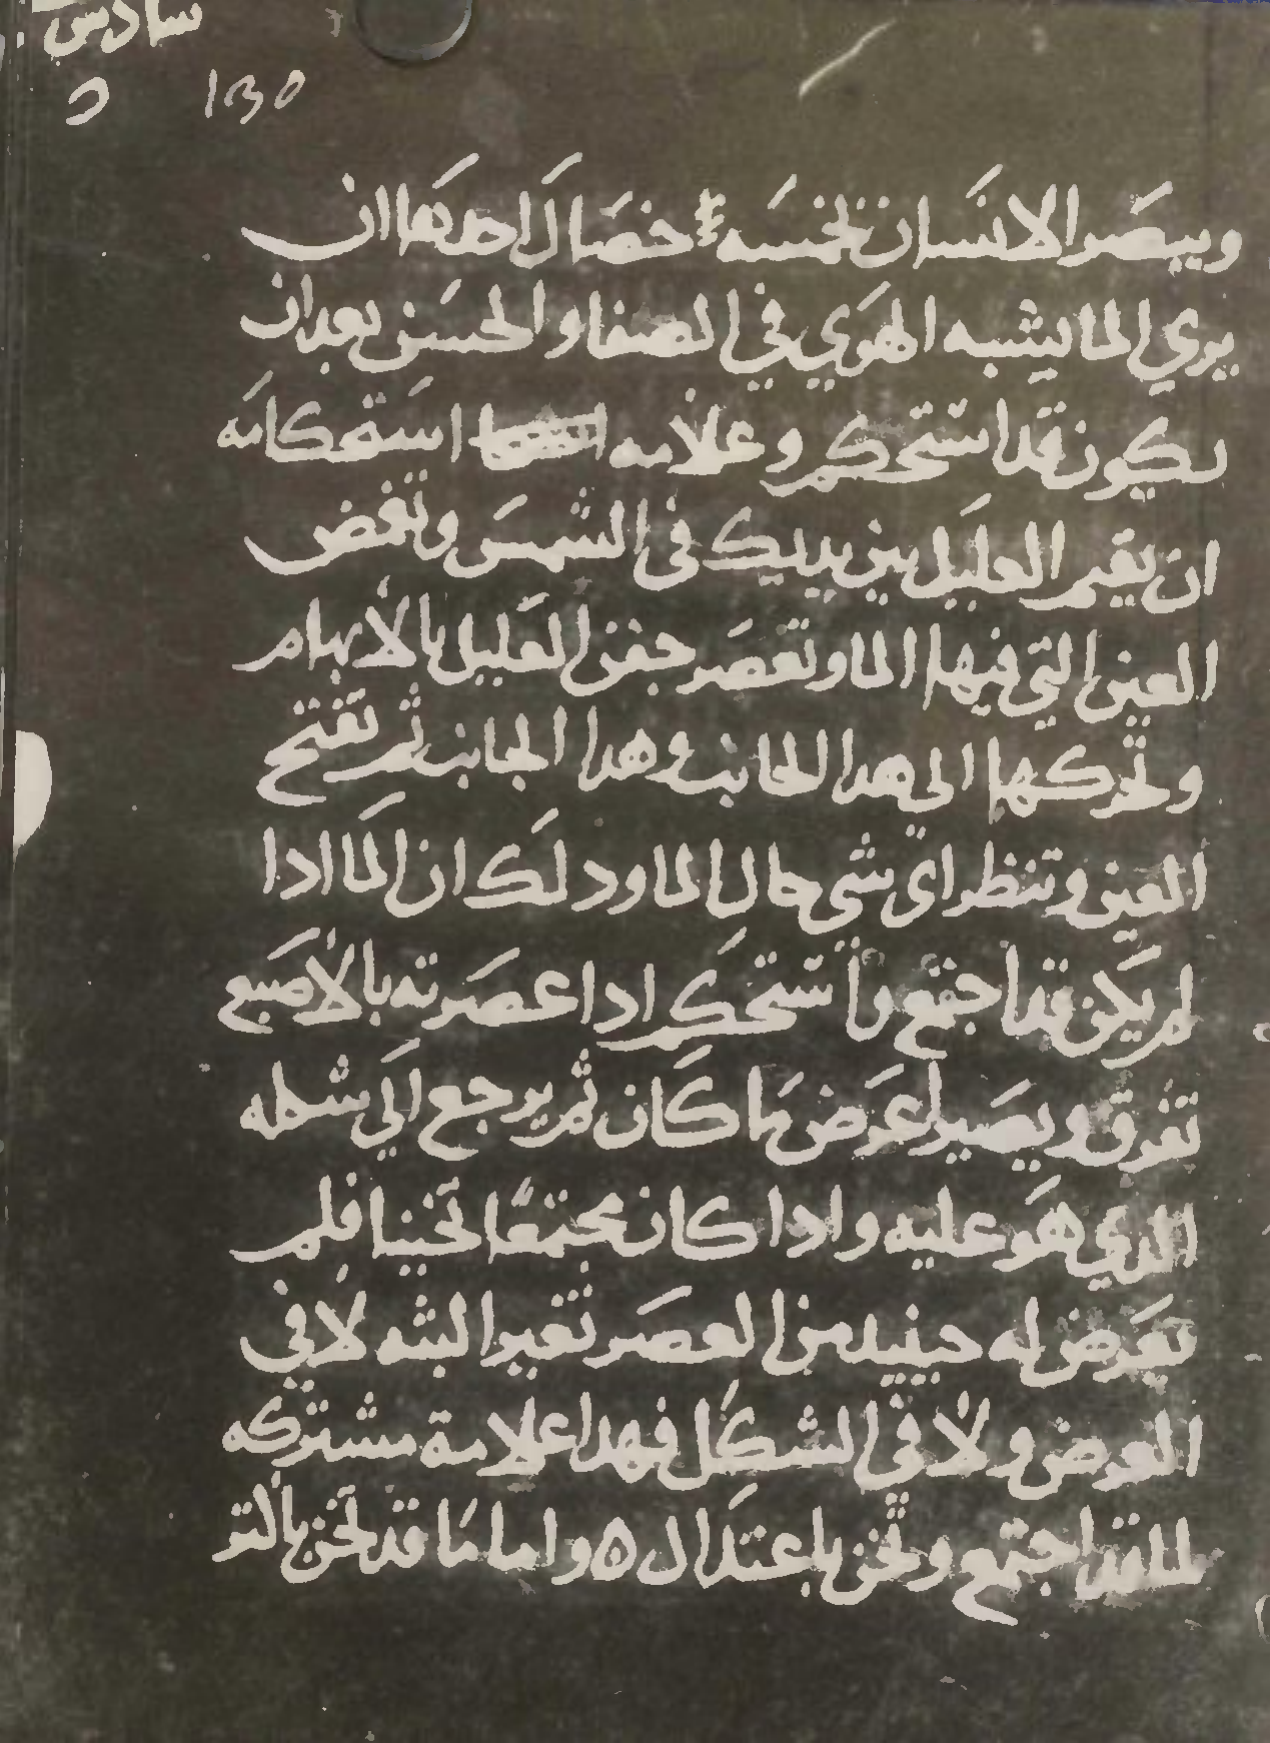 سادس
135
ويبصر الانسان بخمسه خصال احدها ان
يري الما يشبه الهوي في الصفا والحسن بعد ان
يكون قد استحكم وعلامه استحكامه
ان يقيم العليل بين يديك في الشمس وتغمض
العين التي فيها الما وتعصر جفن العليل بالابهام
وتحركها الي هدا الجانب وهدا الجانب ثم تفتح
العين وتنظر اي شي حال الما ودلك ان الما ادا
لم يكن قد اجتمع واستحكم ادا عصرته بالاصبع
تفرق ويصير اعرض ما كان ثم يرجع الي شكله
الدي هو عليه وادا كان مجتمعا تخينا فلم
يعرض له حينيد من العصر تغير البته لا في
العرض ولا في الشكل فهدا علامة مشتركه
لما قد اجتمع وتخن باعتدال ه واما ما قد تخن بالتر